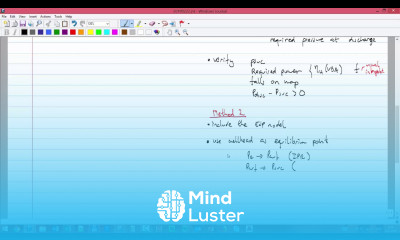 required pressure at discharge
• verify Psuc
Required power { ηe (VSD) f →
falls on map
Pdis - Psuc > 0
Method 2
• Include the ESP model.
• use wellhead as equilibrium point
Pe → Pwf (IPR)
Pwf → Psuc (
Mind
Luster